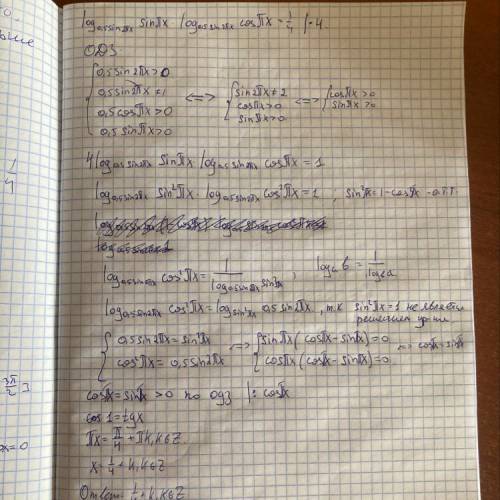 log₀,₅ₛᵢₙ₂πₓ sinπx · log₀,₅ₛᵢₙ₂πₓ cosπx = 1/4 | · 4
ОДЗ
{ 0,5sin2πx > 0
0,5sin2πx ≠ 1
0,5cosπx > 0
0,5sinπx > 0
<=> { sin2πx ≠ 2
cosπx > 0
sinπx > 0
<=> { cosπx > 0
sinπx > 0
4log₀,₅ₛᵢₙ₂πₓ sinπx log₀,₅ₛᵢₙ₂πₓ cosπx = 1
log₀,₅ₛᵢₙ₂πₓ sin²πx · log₀,₅ₛᵢₙ₂πₓ cos²πx = 1 ; sin²πx = 1 - cos²πx - о.т.т.
log₀,₅ₛᵢₙ₂πₓ cos²πx = 1/(log₀,₅ₛᵢₙ₂πₓ sin²πx) ;
log₀,₅ₛᵢₙ₂πₓ cos²πx = log_{sin²πx} 0,5sin2πx , т.к sin²πx = 1 не является
решением ур-ния
{ 0,5sin2πx = sin²πx
cos²πx = 0,5sin2πx
<=> { sinπx (cosπx - sinπx) = 0
cosπx (cosπx - sinπx) = 0
<=> cosπx = sinπx
cosπx = sinπx > 0 по одз |: cosπx
1 = tgx
πx = π/4 + πk, k∈Z
x = 1/4 + k, k∈Z
Ответ: 1/4 + k, k∈Z
1/4
3π/2 ]
x = 0